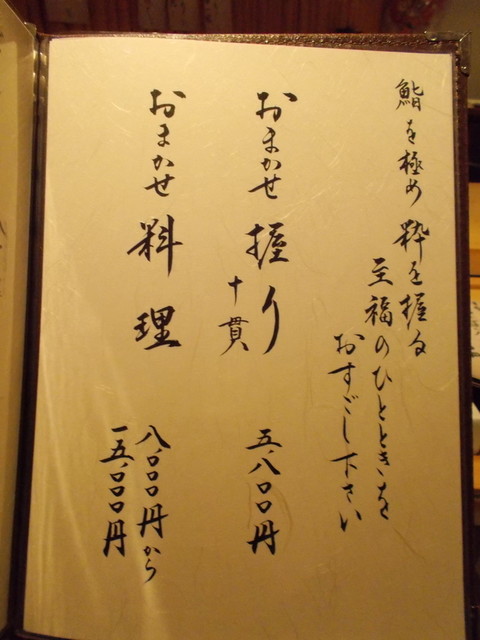 鮨を極め 粋を握る
至福のひとときを
おすごし下さい
おまかせ 握り 五、八〇〇円
十貫
おまかせ 料理 八、〇〇〇円から
一五、〇〇〇円